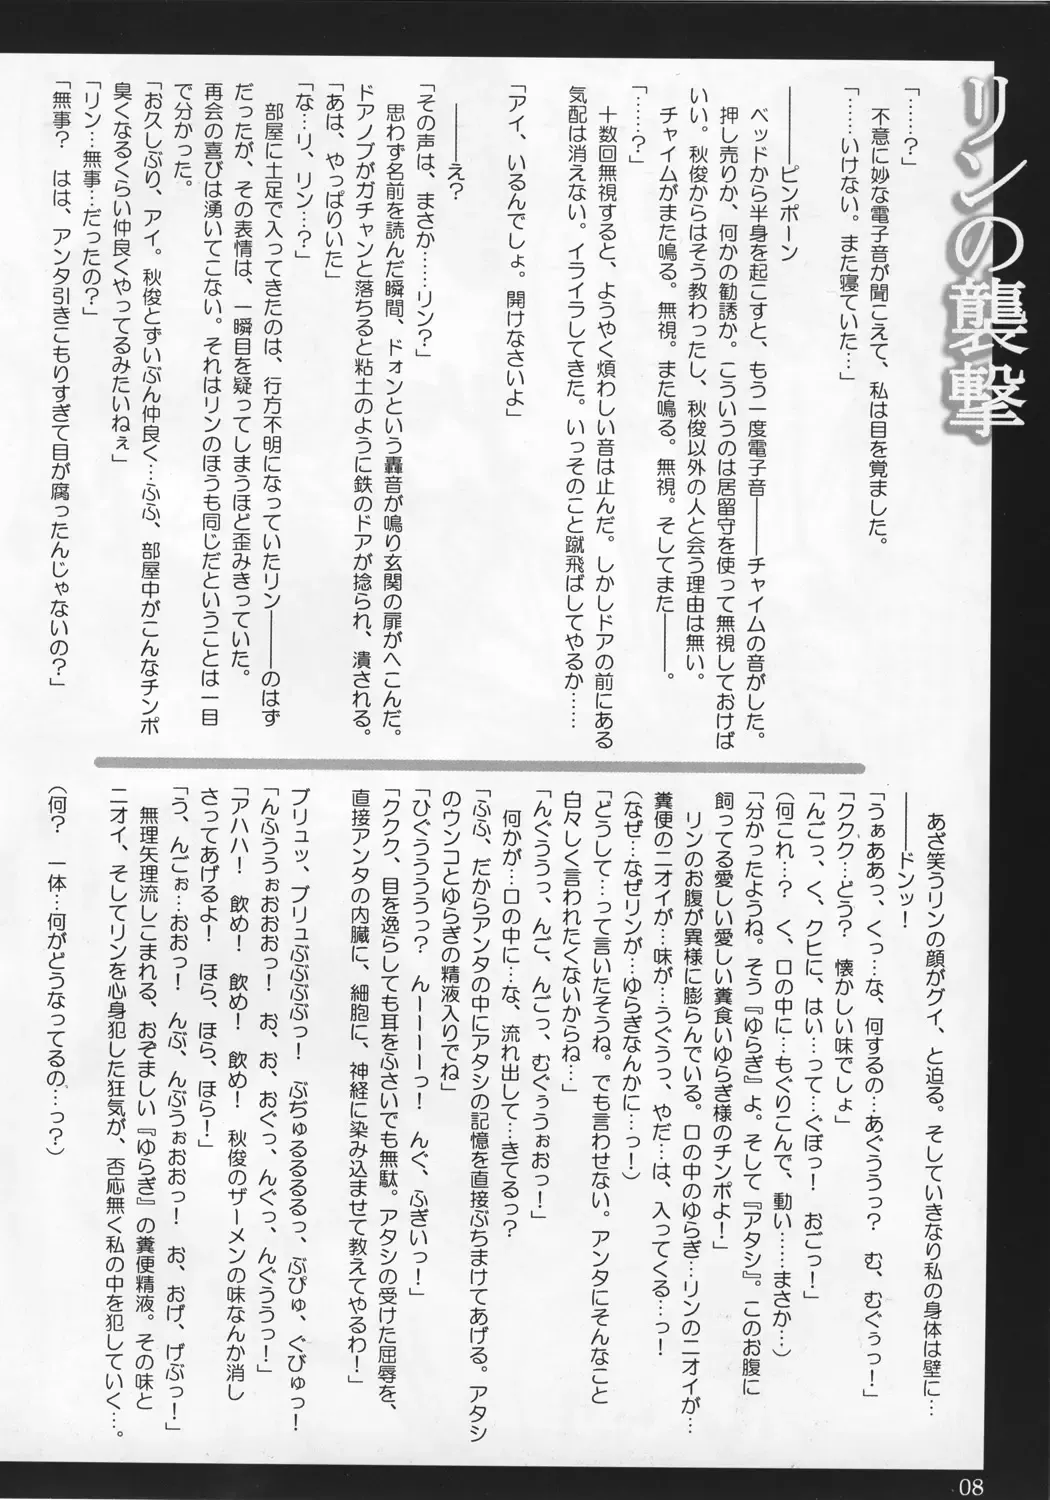 リンの襲撃
「……？」
不意に妙な電子音が聞こえて、私は目を覚ました。
「……いけない。また寝ていた…」
―――ピンポーン
ベッドから半身を起こすと、もう一度電子音―――チャイムの音がした。
押し売りか、何かの勧誘か。こういうのは居留守を使って無視しておけば
いい。秋俊からはそう教わったし、秋俊以外の人と会う理由は無い。
チャイムがまた鳴る。無視。また鳴る。無視。そしてまた―――。
「……？」
十数回無視すると、ようやく煩わしい音は止んだ。しかしドアの前にある
気配は消えない。イライラしてきた。いっそのこと蹴飛ばしてやるか……
「アイ、いるんでしょ。開けなさいよ」
―――え？
「その声は、まさか……リン？」
思わず名前を読んだ瞬間、ドォンという轟音が鳴り玄関の扉がへこんだ。
ドアノブがガチャンと落ちると粘土のように鉄のドアが捻られ、潰される。
「あは、やっぱりいた」
「な…リ、リン…？」
部屋に土足で入ってきたのは、行方不明になっていたリン―――のはず
だったが、その表情は、一瞬目を疑ってしまうほど歪みきっていた。
再会の喜びは湧いてこない。それはリンのほうも同じだということは一目
で分かった。
「お久しぶり、アイ。秋俊とずいぶん仲良く…ふふ、部屋中がこんなチンポ
臭くなるくらい仲良くやってるみたいねぇ」
「リン…無事…だったの？」
「無事？　はは、アンタ引きこもりすぎて目が腐ったんじゃないの？」
あざ笑うリンの顔がグイ、と迫る。そしていきなり私の身体は壁に…
―――ドンッ！
「うぁああっ、くっ…な、何するの…あぐううっ？　む、むぐぅっ！」
「ククク…どう？　懐かしい味でしょ」
「んごっ、く、クヒに、はい…って…ぐぼっ！　おごっ！」
（何これ…？　く、口の中に…もぐりこんで、動い……まさか…）
「分かったようね。そう『ゆらぎ』よ。そして『アタシ』。このお腹に
飼ってる愛しい愛しい糞食いゆらぎ様のチンポよ！」
リンのお腹が異様に膨らんでいる。口の中のゆらぎ…リンのニオイが…
糞便のニオイが…味が…うぐうっ、やだ…は、入ってくる…っ！
（なぜ…なぜリンが…ゆらぎなんかに…っ！）
「どうして…って言いたそうね。でも言わせない。アンタにそんなこと
白々しく言われたくないからね…」
「んぐううっ、んご、んごっ、むぐぅうぉおっ！」
何かが…口の中に…な、流れ出して…きてるっ？
「ふふ、だからアンタの中にアタシの記憶を直接ぶちまけてあげる。アタシ
のウンコとゆらぎの精液入りでね」
「ひぐううううっ？　んーーーーっ！　んぐ、ふぎいっ！」
「ククク、目を逸らしても耳をふさいでも無駄。アタシの受けた屈辱を、
直接アンタの内臓に、細胞に、神経に染み込ませて教えてやるわ！」
ブリュッ、ブリュぶぶぶぶっ！　ぶぢゅるるるるっ、ぶぴゅ、ぐびゅっ！
「んふううぉおおおっ！　お、お、おぐっ、んぐっ、んぐううっ！」
「アハハ！　飲め！　飲め！　飲め！　秋俊のザーメンの味なんか消し
さってあげるよ！　ほら、ほら、ほら！」
「う、んごぉ…おおっ！　んぷ、んぶうぉおおっ！　お、おげ、げぶっ！」
無理矢理流しこまれる、おぞましい『ゆらぎ』の糞便精液。その味と
ニオイ、そしてリンを心身犯した狂気が、否応無く私の中を犯していく…。
（何？　一体…何がどうなってるの…っ？）
08